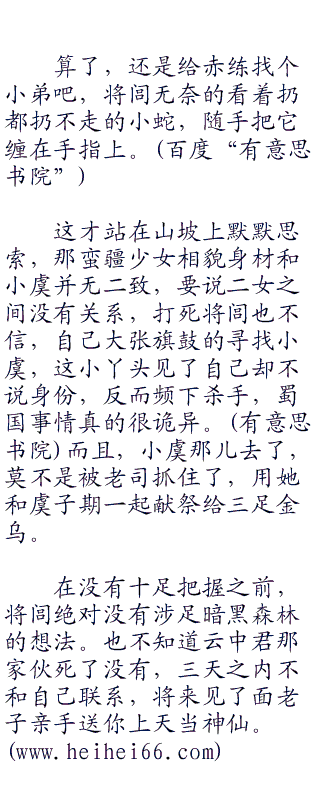 算了，还是给赤练找个
小弟吧，将闾无奈的看着扔
都扔不走的小蛇，随手把它
缠在手指上。(百度“有意思
书院”)
这才站在山坡上默默思
索，那蛮疆少女相貌身材和
小虞并无二致，要说二女之
间没有关系，打死将闾也不
信，自己大张旗鼓的寻找小
虞，这小丫头见了自己却不
说身份，反而频下杀手，蜀
国事情真的很诡异。(有意思
书院)而且，小虞那儿去了，
莫不是被老司抓住了，用她
和虞子期一起献祭给三足金
乌。
在没有十足把握之前，
将闾绝对没有涉足暗黑森林
的想法。也不知道云中君那
家伙死了没有，三天之内不
和自己联系，将来见了面老
子亲手送你上天当神仙。
(www.heihei66.com)